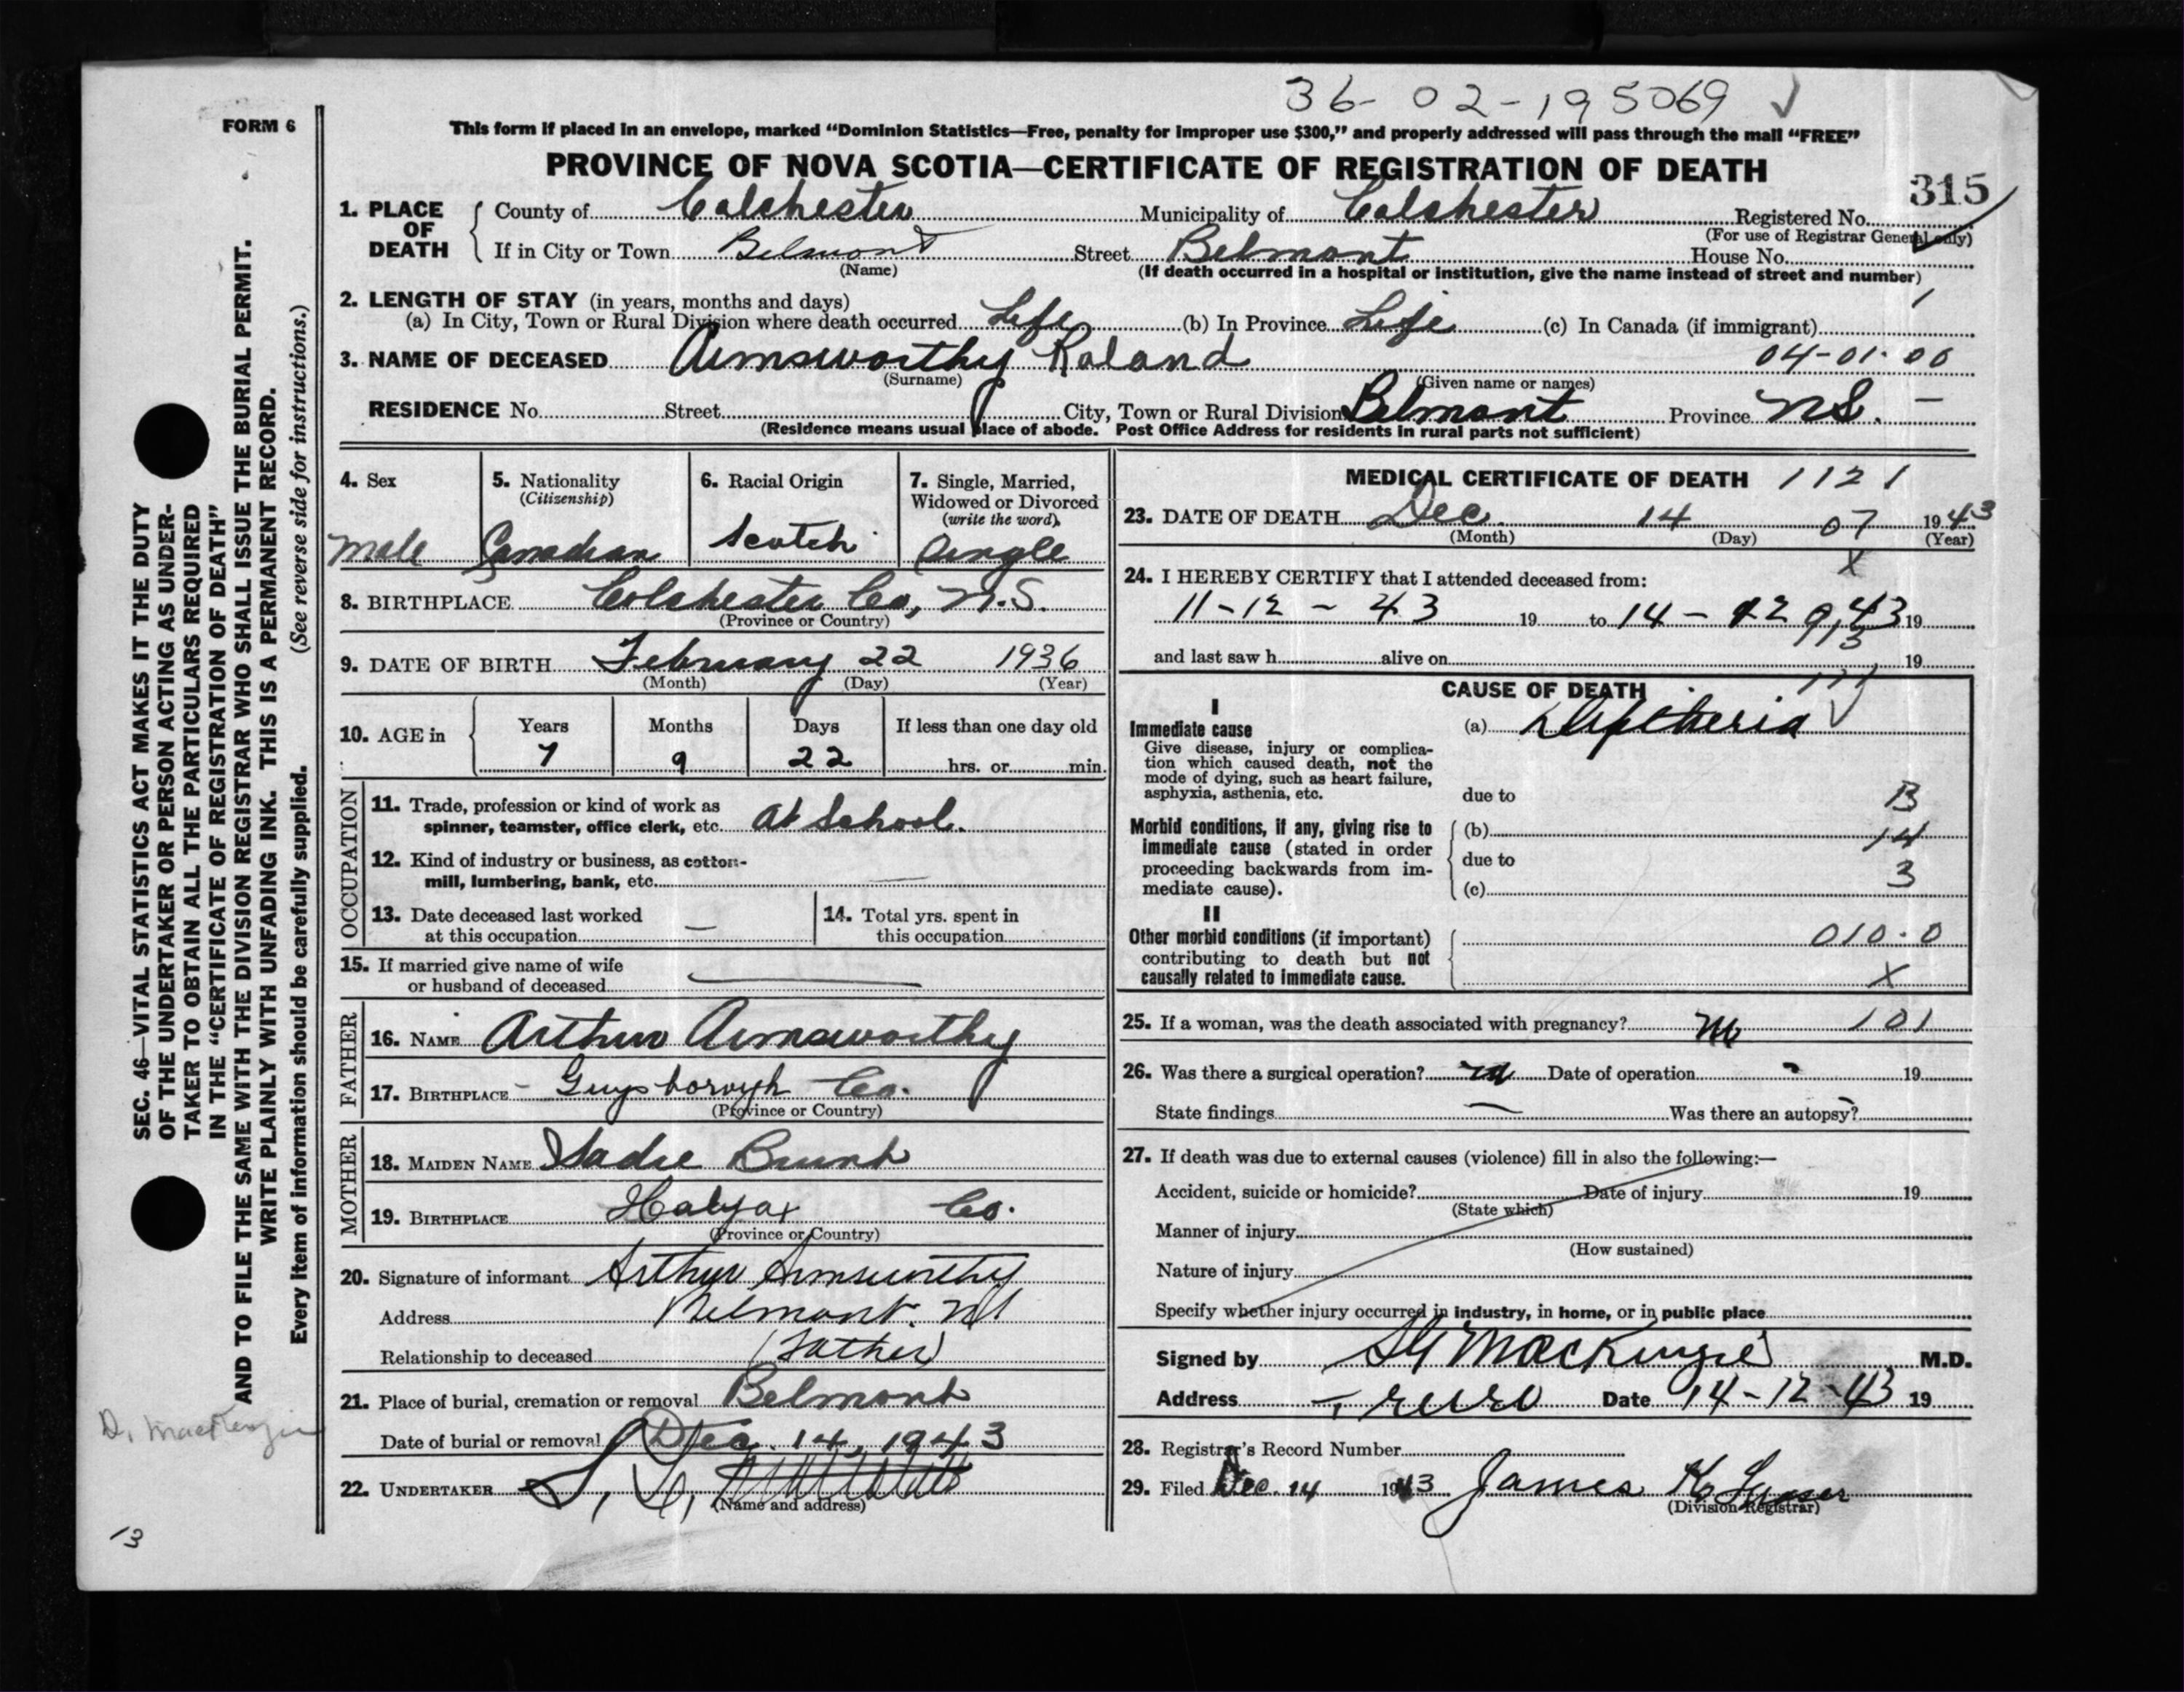 36-02-195069
FORM 6
This form if placed in an envelope, marked “Dominion Statistics—Free, penalty for improper use $300,” and properly addressed will pass through the mail “FREE”
PROVINCE OF NOVA SCOTIA—CERTIFICATE OF REGISTRATION OF DEATH
315
1. PLACE OF DEATH
County of Colchester Municipality of Colchester Registered No.
(For use of Registrar General only)
If in City or Town Belmont Street Belmont House No.
(Name) (If death occurred in a hospital or institution, give the name instead of street and number)
2. LENGTH OF STAY (in years, months and days)
(a) In City, Town or Rural Division where death occurred Life (b) In Province Life (c) In Canada (if immigrant)
3. NAME OF DECEASED Armsworthy Roland 04-01-00
(Surname) (Given name or names)
RESIDENCE No. Street City, Town or Rural Division Belmont Province N.S. —
(Residence means usual place of abode. Post Office Address for residents in rural parts not sufficient)
4. Sex 5. Nationality 6. Racial Origin 7. Single, Married,
(Citizenship) Widowed or Divorced
(write the word)
male Canadian Scotch Single
8. BIRTHPLACE Colchester Co, N.S.
(Province or Country)
9. DATE OF BIRTH February 22 1936
(Month) (Day) (Year)
10. AGE in Years Months Days If less than one day old
7 9 22 hrs. or min.
OCCUPATION
11. Trade, profession or kind of work as
spinner, teamster, office clerk, etc. At School.
12. Kind of industry or business, as cotton-
mill, lumbering, bank, etc. —
13. Date deceased last worked
at this occupation —
14. Total yrs. spent in
this occupation
15. If married give name of wife
or husband of deceased
FATHER
16. NAME Arthur Armsworthy
17. BIRTHPLACE Guysborough Co.
(Province or Country)
MOTHER
18. MAIDEN NAME Sadie
19. BIRTHPLACE Halifax Co.
(Province or Country)
20. Signature of informant Arthur Armsworthy
Address Belmont. NS
Relationship to deceased (Father)
21. Place of burial, cremation or removal Belmont
Date of burial or removal Dec. 14, 1943
22. UNDERTAKER
(Name and address)
MEDICAL CERTIFICATE OF DEATH 1121
23. DATE OF DEATH Dec. 14 07 1943
(Month) (Day) (Year)
X
24. I HEREBY CERTIFY that I attended deceased from:
11-12-43 19 to 14-12 43 19
913
and last saw h alive on 19
CAUSE OF DEATH
I
Immediate cause
Give disease, injury or complica-
tion which caused death, not the
mode of dying, such as heart failure,
asphyxia, asthenia, etc.
(a) Diptheria
due to B
Morbid conditions, if any, giving rise to
immediate cause (stated in order
proceeding backwards from im-
mediate cause).
(b) 14
due to
(c) 3
II
Other morbid conditions (if important)
contributing to death but not
causally related to immediate cause.
010.0
X
25. If a woman, was the death associated with pregnancy? 101
26. Was there a surgical operation? Date of operation 19
State findings — Was there an autopsy?
27. If death was due to external causes (violence) fill in also the following:—
Accident, suicide or homicide? Date of injury 19
(State which)
Manner of injury
(How sustained)
Nature of injury
Specify whether injury occurred in industry, in home, or in public place
Signed by MacKenzie M.D.
Address Truro Date 14-12-43 19
28. Registrar's Record Number
29. Filed Dec. 14 1943 James K.
(Division Registrar)
SEC. 46—VITAL STATISTICS ACT MAKES IT THE DUTY
OF THE UNDERTAKER OR PERSON ACTING AS UNDER-
TAKER TO OBTAIN ALL THE PARTICULARS REQUIRED
IN THE “CERTIFICATE OF REGISTRATION OF DEATH”
AND TO FILE THE SAME WITH THE DIVISION REGISTRAR WHO SHALL ISSUE THE BURIAL PERMIT.
WRITE PLAINLY WITH UNFADING INK. THIS IS A PERMANENT RECORD.
Every item of information should be carefully supplied. (See reverse side for instructions.)
D. MacKenzie
13